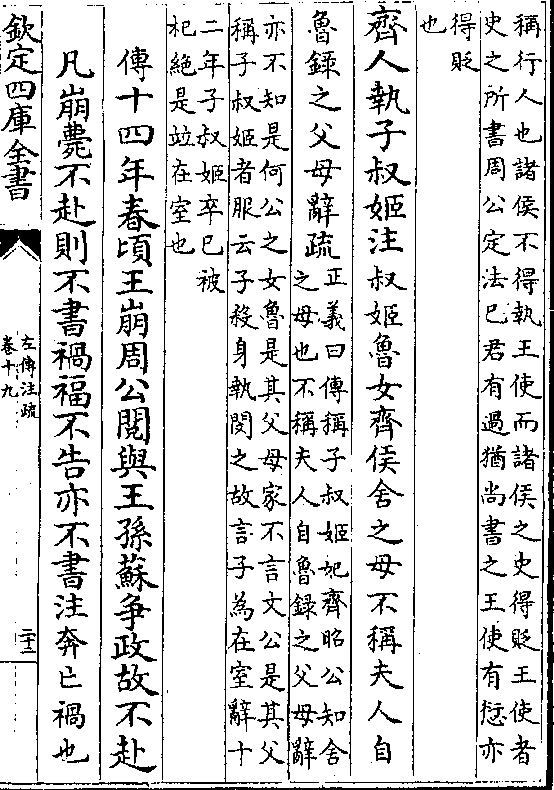 稱行人也諸侯不得執王使而諸侯之史得貶王使者
史之所書周公定法巳君有過猶尚書之王使有愆亦
得貶
也
齊人執子叔姬注叔姬魯女齊侯舍之母不稱夫人自
魯録之父母辭疏
正義曰傳稱子叔姬妃齊昭公知舍
之母也不稱夫人自魯録之父母辭
亦不知是何公之女魯是其父母家不言文公是其父
稱子叔姬者服云子殺身執閔之故言子為在室辭十
二年子叔姬卒已被
杞絶是竝在室也
傳十四年春頃王崩周公閱與王孫蘇爭政故不赴
凡崩薨不赴則不書禍福不告亦不書注奔亡禍也
欽定四庫全書
左傳注疏
卷十九
二十二